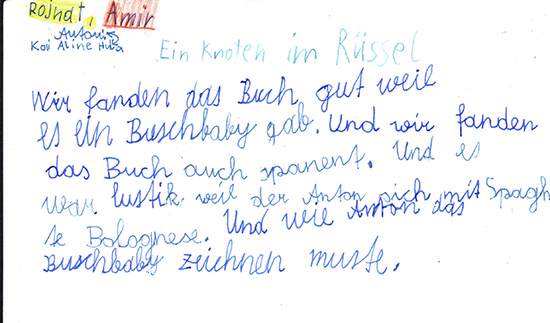 Rojndt, Amir
Antonis
Kai Aline Hu
Ein Knoten im Rüssel
Wir fanden das Buch gut weil
es ein Buschbaby gab. Und wir fanden
das Buch auch spanent. Und es
war lustik weil der Anton sich mit Spagh
te Bolognese. Und wie Anton das
Buschbaby zeichnen muste.